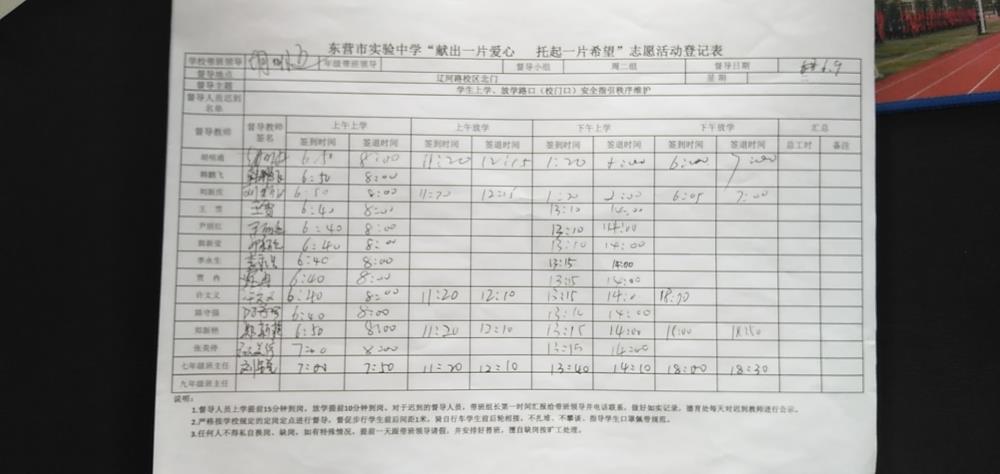 东营市实验中学“献出一片爱心 托起一片希望”志愿活动登记表
学校带班领导 年级带班领导 督导小组 周二组 督导日期
督导地点 辽河路校区北门 星期
督导主题 学生上学、放学路口（校门口）安全指引秩序维护
督导人员迟到名单
督导教师 督导教师签名 上午上学 上午放学 下午上学 下午放学 汇总
签到时间 签退时间 签到时间 签退时间 签到时间 签退时间 签到时间 签退时间 总工时 备注
6:50 8:00 11:20 12:15 1:20 6:00 7:00
韩鹏飞 6:50 8:00
6:50 8:00 11:20 1:20 2:00 6:05 7:00
王雪 王雪 6:40 8:00 13:10 14:00
尹丽红 6:40 8:00 13:10 14:00
6:40 8:00 13:10 14:00
李永生 李永生 6:40 8:00 13:15 14:00
贾冉 6:40 8:00 13:15 14:00
许文文 6:40 8:00 11:20 12:10 13:15
陈守强 6:40 8:00 14:00
郑新艳 6:50 8:00 11:20 12:10 13:15 14:00 18:00
张美婷 7:00 8:00 13:15 14:00
七年级班主任 7:00 7:50 11:20 12:10 13:40 14:10 18:00 18:30
九年级班主任
说明：
1.督导人员上学提前15分钟到岗，放学提前10分钟到岗，对于迟到的督导人员，带班组长第一时间汇报给带班领导并电话联系，做好如实记录，德育处每天对迟到教师进行公示。
2.严格按学校规定的定岗定点进行督导，督促步行学生前后间距1米，骑自行车学生前后轮相接，不扎堆、不攀谈，指导学生口罩佩带规范。
3.任何人不得私自换岗、缺岗，如有特殊情况，提前一天跟带班领导请假，并安排好替班，擅自缺岗按旷工处理。